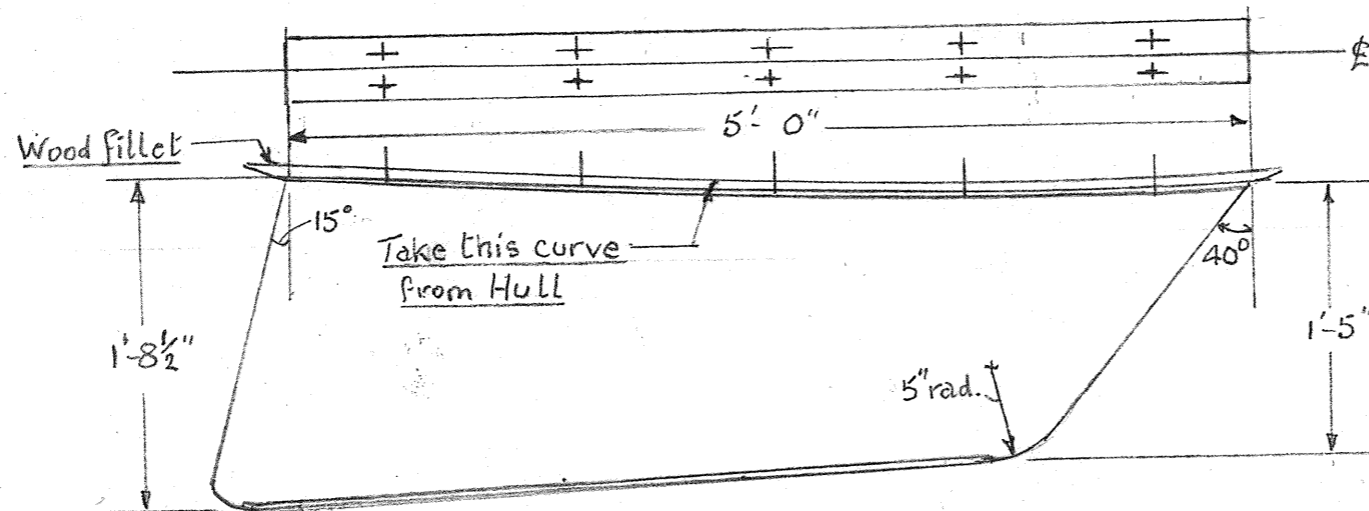 ℄
5'- 0"
Wood fillet
15°
Take this curve
from Hull
40°
1'-8½"
1'-5"
5" rad.